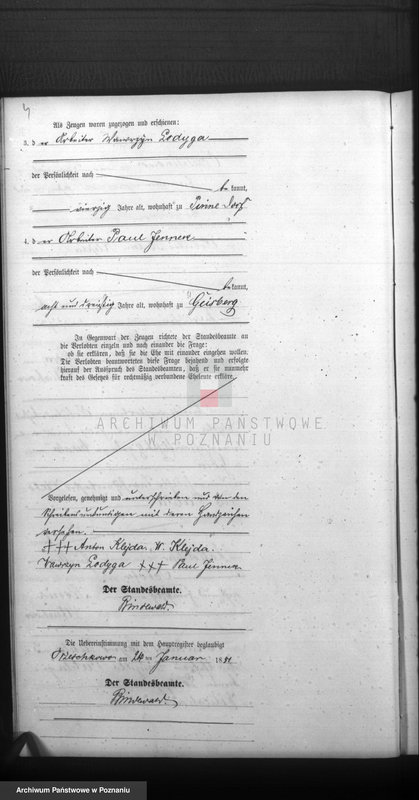 4
Als Zeugen waren zugezogen und erschienen:
3. d er Arbeiter Wawrzyn Lodyga
der Persönlichkeit nach
be kannt,
vierzig Jahre alt, wohnhaft zu Pinne Dorf
4. d er Arbeiter Paul Jenner
der Persönlichkeit nach
be kannt,
acht und dreißig Jahre alt, wohnhaft zu Geisberg
In Gegenwart der Zeugen richtete der Standesbeamte an
die Verlobten einzeln und nach einander die Frage:
ob sie erklären, daß sie die Ehe mit einander eingehen wollen.
Die Verlobten beantworteten diese Frage bejahend und erfolgte
hierauf der Ausspruch des Standesbeamten, daß er sie nunmehr
kraft des Gesetzes für rechtmäßig verbundene Eheleute erkläre.
ARCHIWUM PAŃSTWOWE
W POZNANIU
Vorgelesen, genehmigt und unterschrieben und von den
Schreibensunkundigen mit deren Handzeichen
versehen.
+++ Anton Klejda. W. Klejda.
Wawrzyn Lodyga +++ Paul Jenner
Der Standesbeamte.
Die Uebereinstimmung mit dem Hauptregister beglaubigt
am 24 ten Januar 1881
Der Standesbeamte.
Archiwum Państwowe w Poznaniu